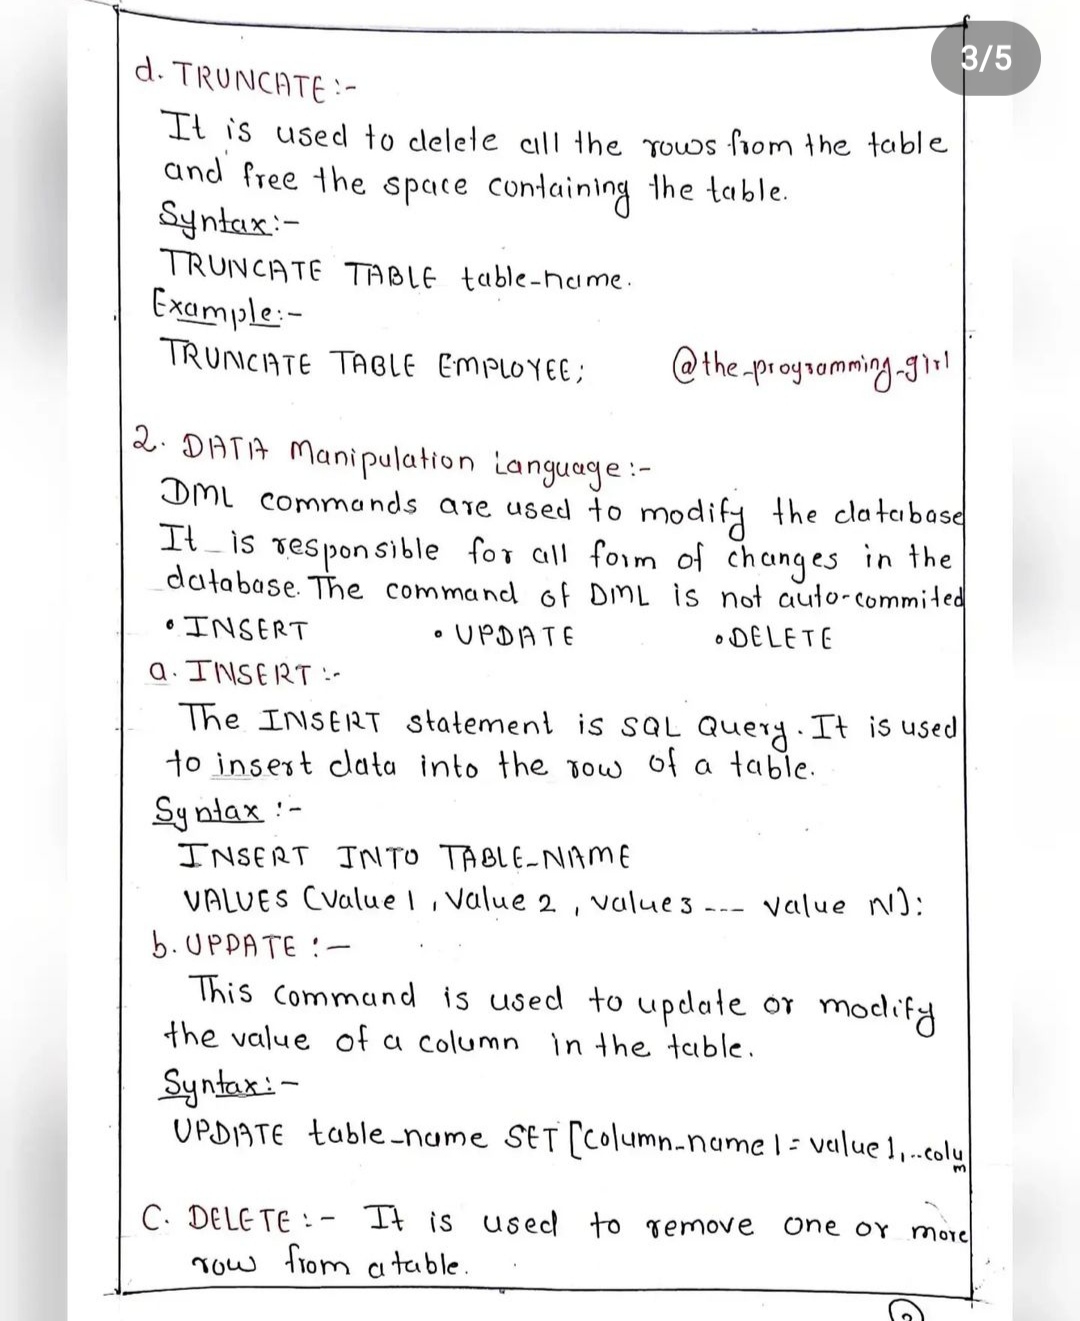 3/5
d. TRUNCATE :-
It is used to delete all the rows from the table
and free the space containing the table.
Syntax:-
TRUNCATE TABLE table-name.
Example:-
TRUNCATE TABLE EMPLOYEE;
@the-programming-girl
2. DATA Manipulation Language :-
DML commands are used to modify the database
It is responsible for all form of changes in the
database. The command of DML is not auto-commited
• INSERT • UPDATE • DELETE
a. INSERT :-
The INSERT statement is SQL Query. It is used
to insert data into the row of a table.
Syntax :-
INSERT INTO TABLE_NAME
VALUES (Value 1, Value 2, value 3 --- value N):
b. UPDATE :-
This command is used to update or modify
the value of a column in the table.
Syntax:-
UPDATE table_name SET [column_name 1 = value 1,..colum
C. DELETE :- It is used to remove one or more
row from a table.